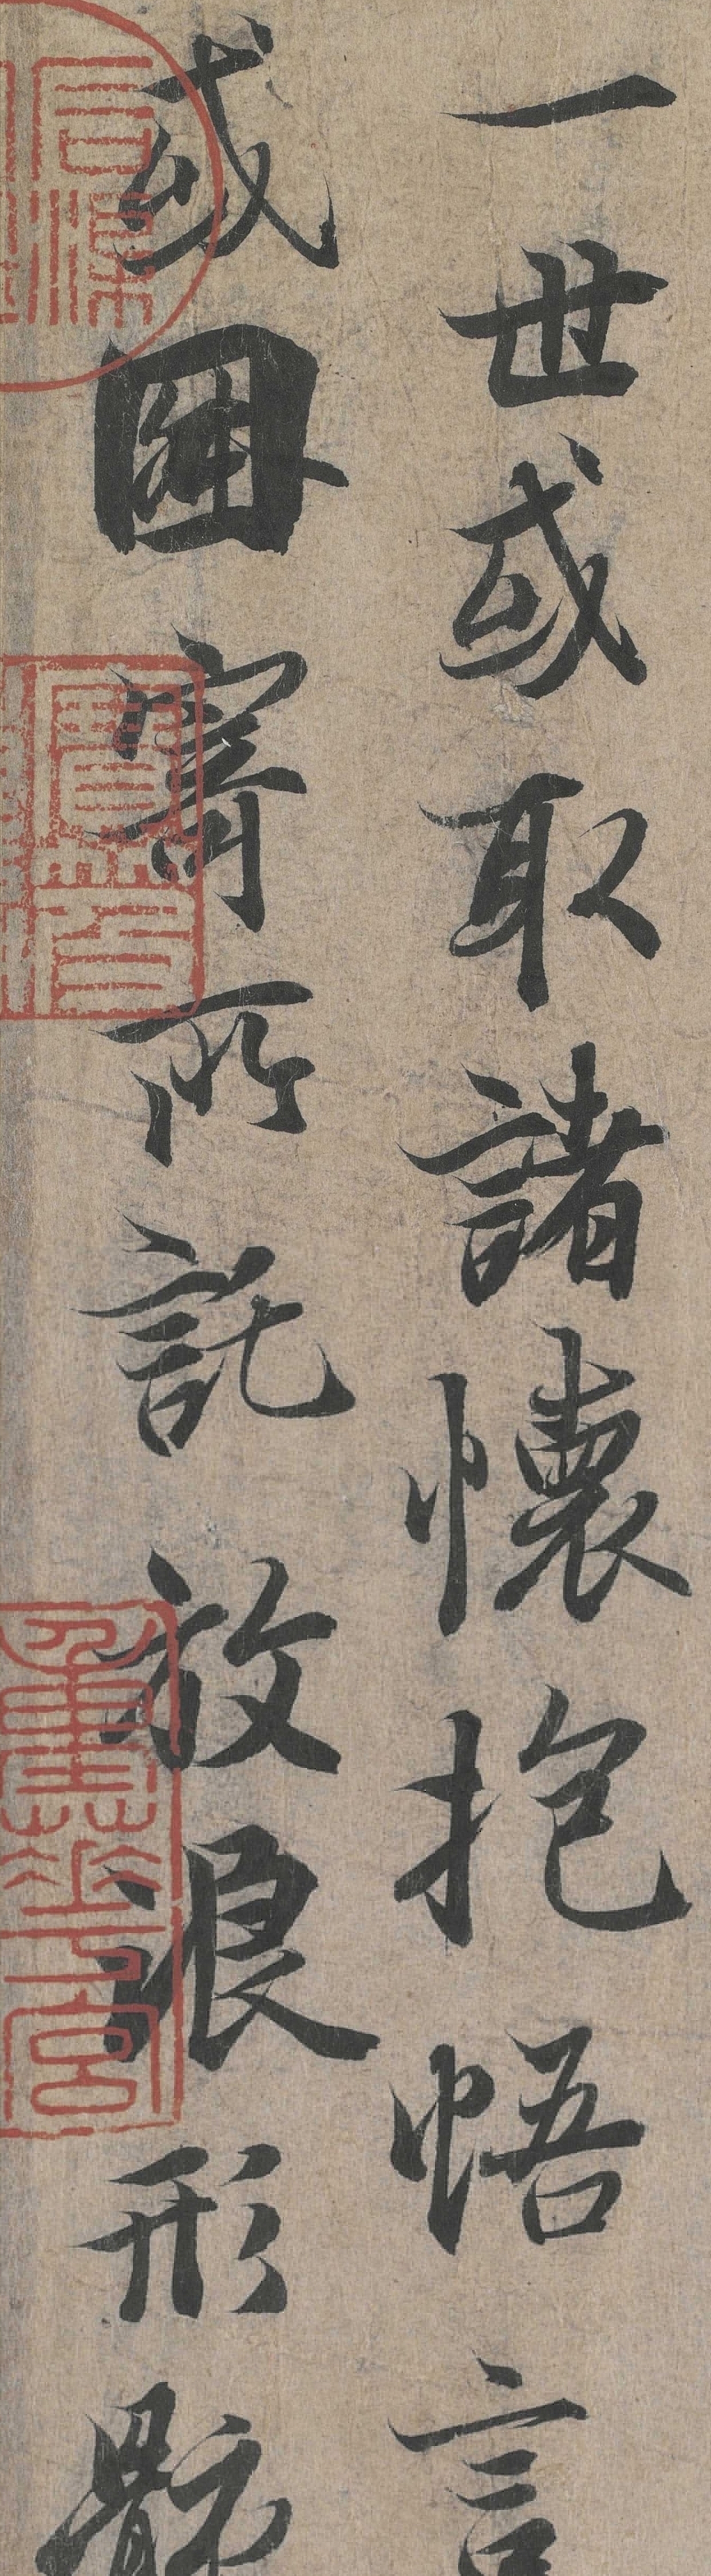 一世或取諸懷抱悟言
或因寄所託放浪形骸
重華宮